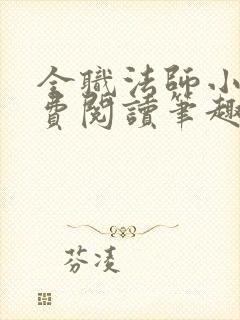 全職法師小
費閱讀筆趣
芬凌